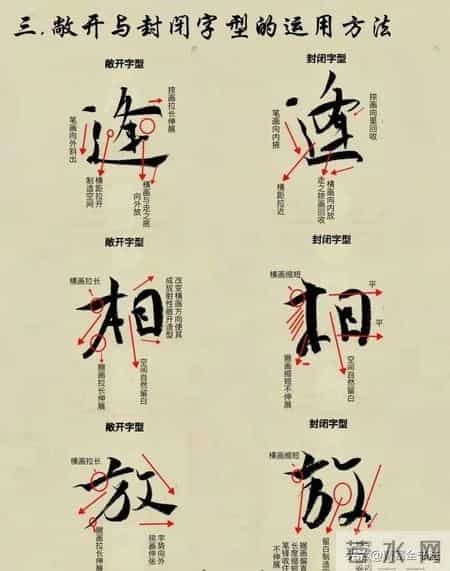 三.敞开与封闭字型的运用方法
敞开字型
封闭字型
逢
捺画拉长伸展
笔画向外斜出
横距拉开
制造空间
横画与走之底
向外放
逢
捺画向里回收
笔画向内擒
横距拉近
走之捺画回收
横画向内放
敞开字型
封闭字型
相
横画拉长
改变横画方向使其
成放射性敞开造型
撇画拉长伸展
空间自然留白
相
横画缩短
平
平
撇画缩短不伸展
空间自然留白
敞开字型
封闭字型
放
横画拉长
撇画拉长伸展
字势向外
捺画伸张
放
横画缩短
撇画偏直
长度缩短
笔锋收住
不伸展
留白制造